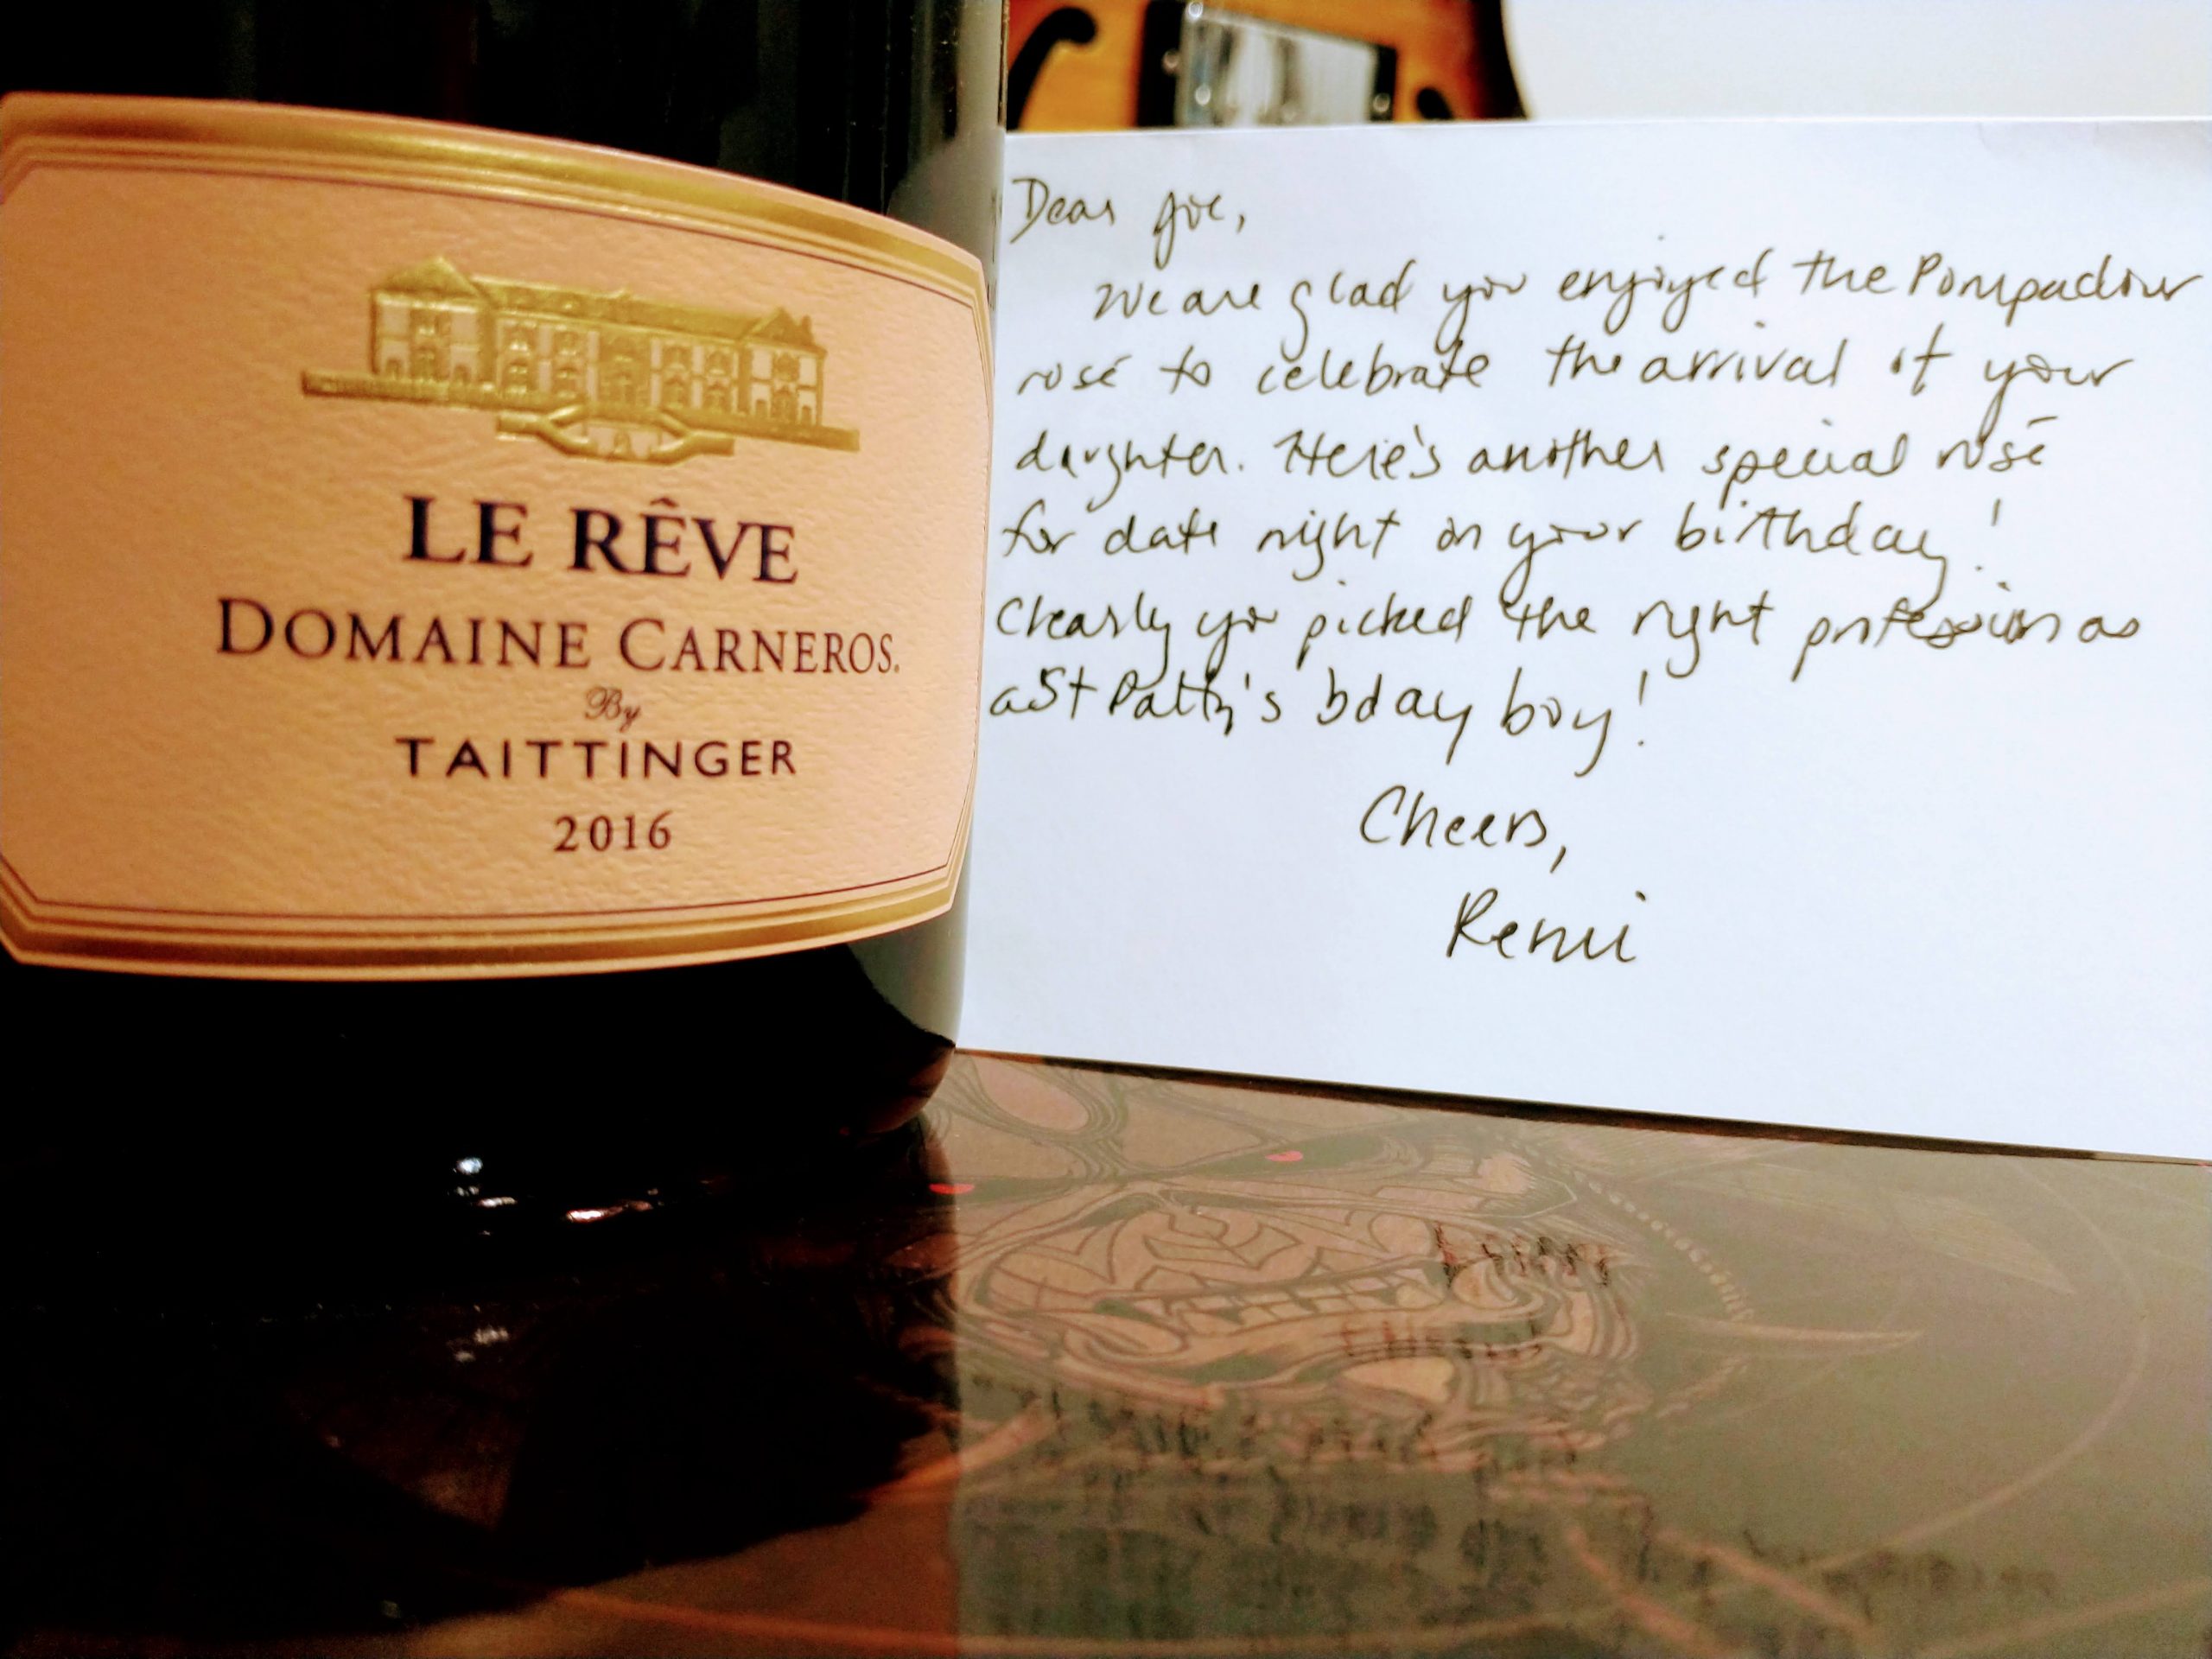 LE RÊVE
DOMAINE CARNEROS.
By
TAITTINGER
2016
Dear Joe,
We are glad you enjoyed the Pompadour
rosé to celebrate the arrival of your
daughter. Here's another special rosé
for date night on your birthday!
Clearly you picked the right profession as
a St Patty's bday boy!
Cheers,
Remi